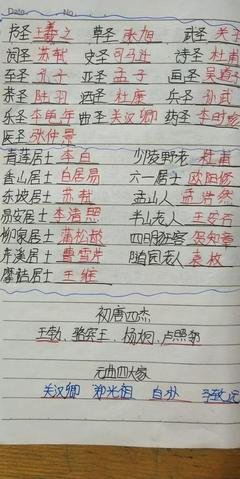 Date No.
书圣王羲之 草圣张旭 武圣关
词圣苏轼 史圣司马迁 诗圣杜甫
至圣孔子 亚圣孟子 画圣吴道子
茶圣陆羽 酒圣杜康 兵圣孙武
乐圣李龟年 曲圣关汉卿 药圣李时珍
医圣张仲景
青莲居士李白 少陵野老杜甫
香山居士白居易 六一居士欧阳修
东坡居士苏轼 孟山人孟浩然
易安居士李清照 半山老人王安石
柳泉居士蒲松龄 四明狂客贺知章
芹溪居士曹雪芹 随园老人袁枚
摩诘居士王维
初唐四杰
王勃、骆宾王、杨炯、卢照邻
元曲四大家
关汉卿 郑光祖 白朴 马致远